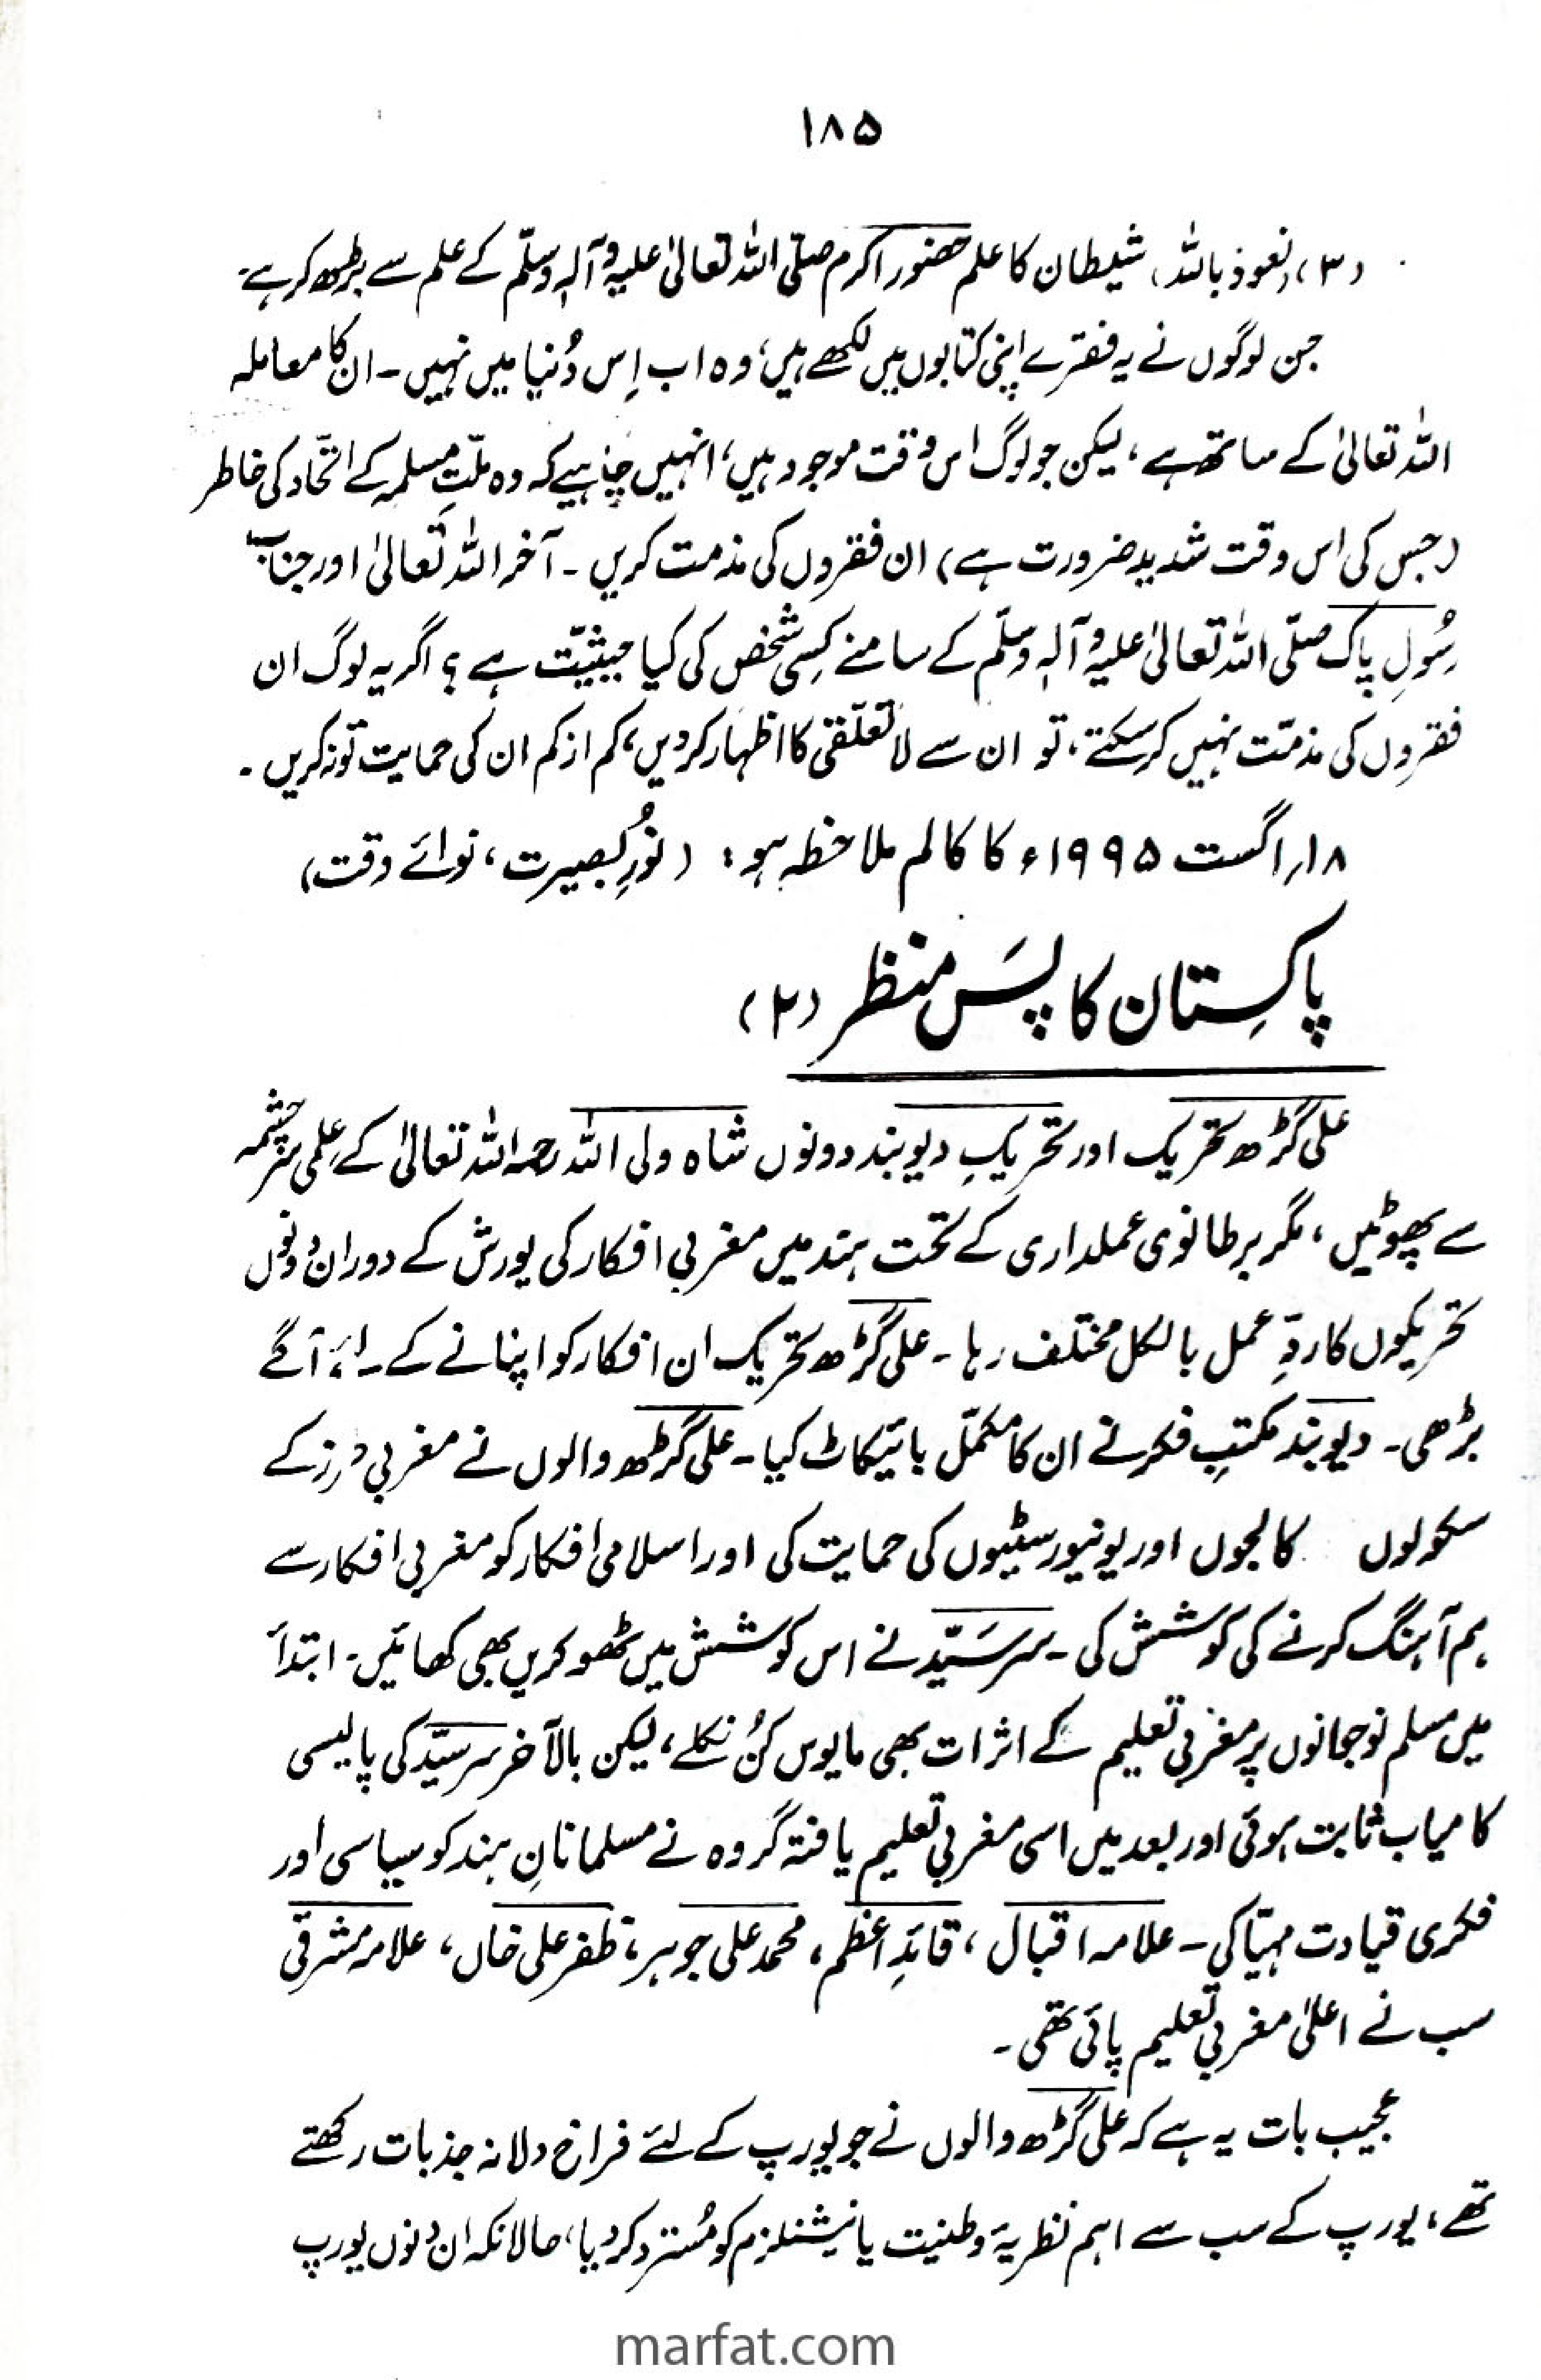 ۱۸۵
(۳) (نعوذ باللہ) شیطان کا علم حضور اکرم صلی اللہ تعالیٰ علیہ وآلہٖ وسلّم کے علم سے بڑھ کر ہے۔
جن لوگوں نے یہ فقرے اپنی کتابوں میں لکھے ہیں، وہ اب اِس دُنیا میں نہیں۔ ان کا معاملہ
اللہ تعالیٰ کے ساتھ ہے، لیکن جو لوگ اس وقت موجود ہیں، انہیں چاہیے کہ وہ ملّتِ مسلمہ کے اتحّاد کی خاطر
(جس کی اس وقت شدید ضرورت ہے) ان فقروں کی مذمت کریں۔ آخر اللہ تعالیٰ اور جناب
رسُولِ پاک صلّی اللہ تعالیٰ علیہ وآلہٖ وسلّم کے سامنے کِسی شخص کی کیا حیثیّت ہے؟ اگر یہ لوگ ان
فقروں کی مذمّت نہیں کر سکتے، تو ان سے لاتعلّقی کا اظہار کر دیں، کم از کم ان کی حمایت تو نہ کریں۔
۱۸؍اگست ۱۹۹۵ء کا کالم ملاحظہ ہو: (نُورِ بصیرت، نوائے وقت)
پاکِستان کا پسَ منظر (۲)
علی گڑھ تحریک اور تحریکِ دیوبند دونوں شاہ ولی اللہ رحمہ اللہ تعالیٰ کے عِلمی سرچشمہ
سے پھوٹیں، مگر برطانوی عملداری کے تحت ہند میں مغربی افکار کی یورش کے دوران دونوں
تحریکوں کا ردِّ عمل بالکل مختلف رہا۔ علی گڑھ تحریک ان افکار کو اپنانے کے آگے
بڑھی۔ دیوبند مکتبِ فکر نے ان کا مکمّل بائیکاٹ کیا۔ علی گڑھ والوں نے مغربی طرز کے
سکولوں کالجوں اور یونیورسٹیوں کی حمایت کی اور اسلامی افکار کو مغربی افکار سے
ہم آہنگ کرنے کی کوشش کی۔ سرسَیّد نے اس کوشش میں ٹھوکریں بھی کھائیں۔ ابتدأ
میں مسلم نوجوانوں پر مغربی تعلیم کے اثرات بھی مایوس کنُ نکلے، لیکن بالآخر سرسیّد کی پالیسی
کامیاب ثابت ہوئی اور بعد میں اسی مغربی تعلیم یافتہ گروہ نے مسلمانانِ ہند کو سیاسی اور
فکری قیادت مہیّا کی۔ علامہ اقبال، قائدِ اعظم، محمد علی جوہر، ظفر علی خاں، علامہ مشرقی
سب نے اعلیٰ مغربی تعلیم پائی تھی۔
عجیب بات یہ ہے کہ علی گڑھ والوں نے جو یورپ کے لئے فراخ دلانہ جذبات رکھتے
تھے، یورپ کے سب سے اہم نظریۂ وطنیت یا نیشنلزم کو مُسترد کر دیا، حالانکہ ان دنوں یورپ
marfat.com